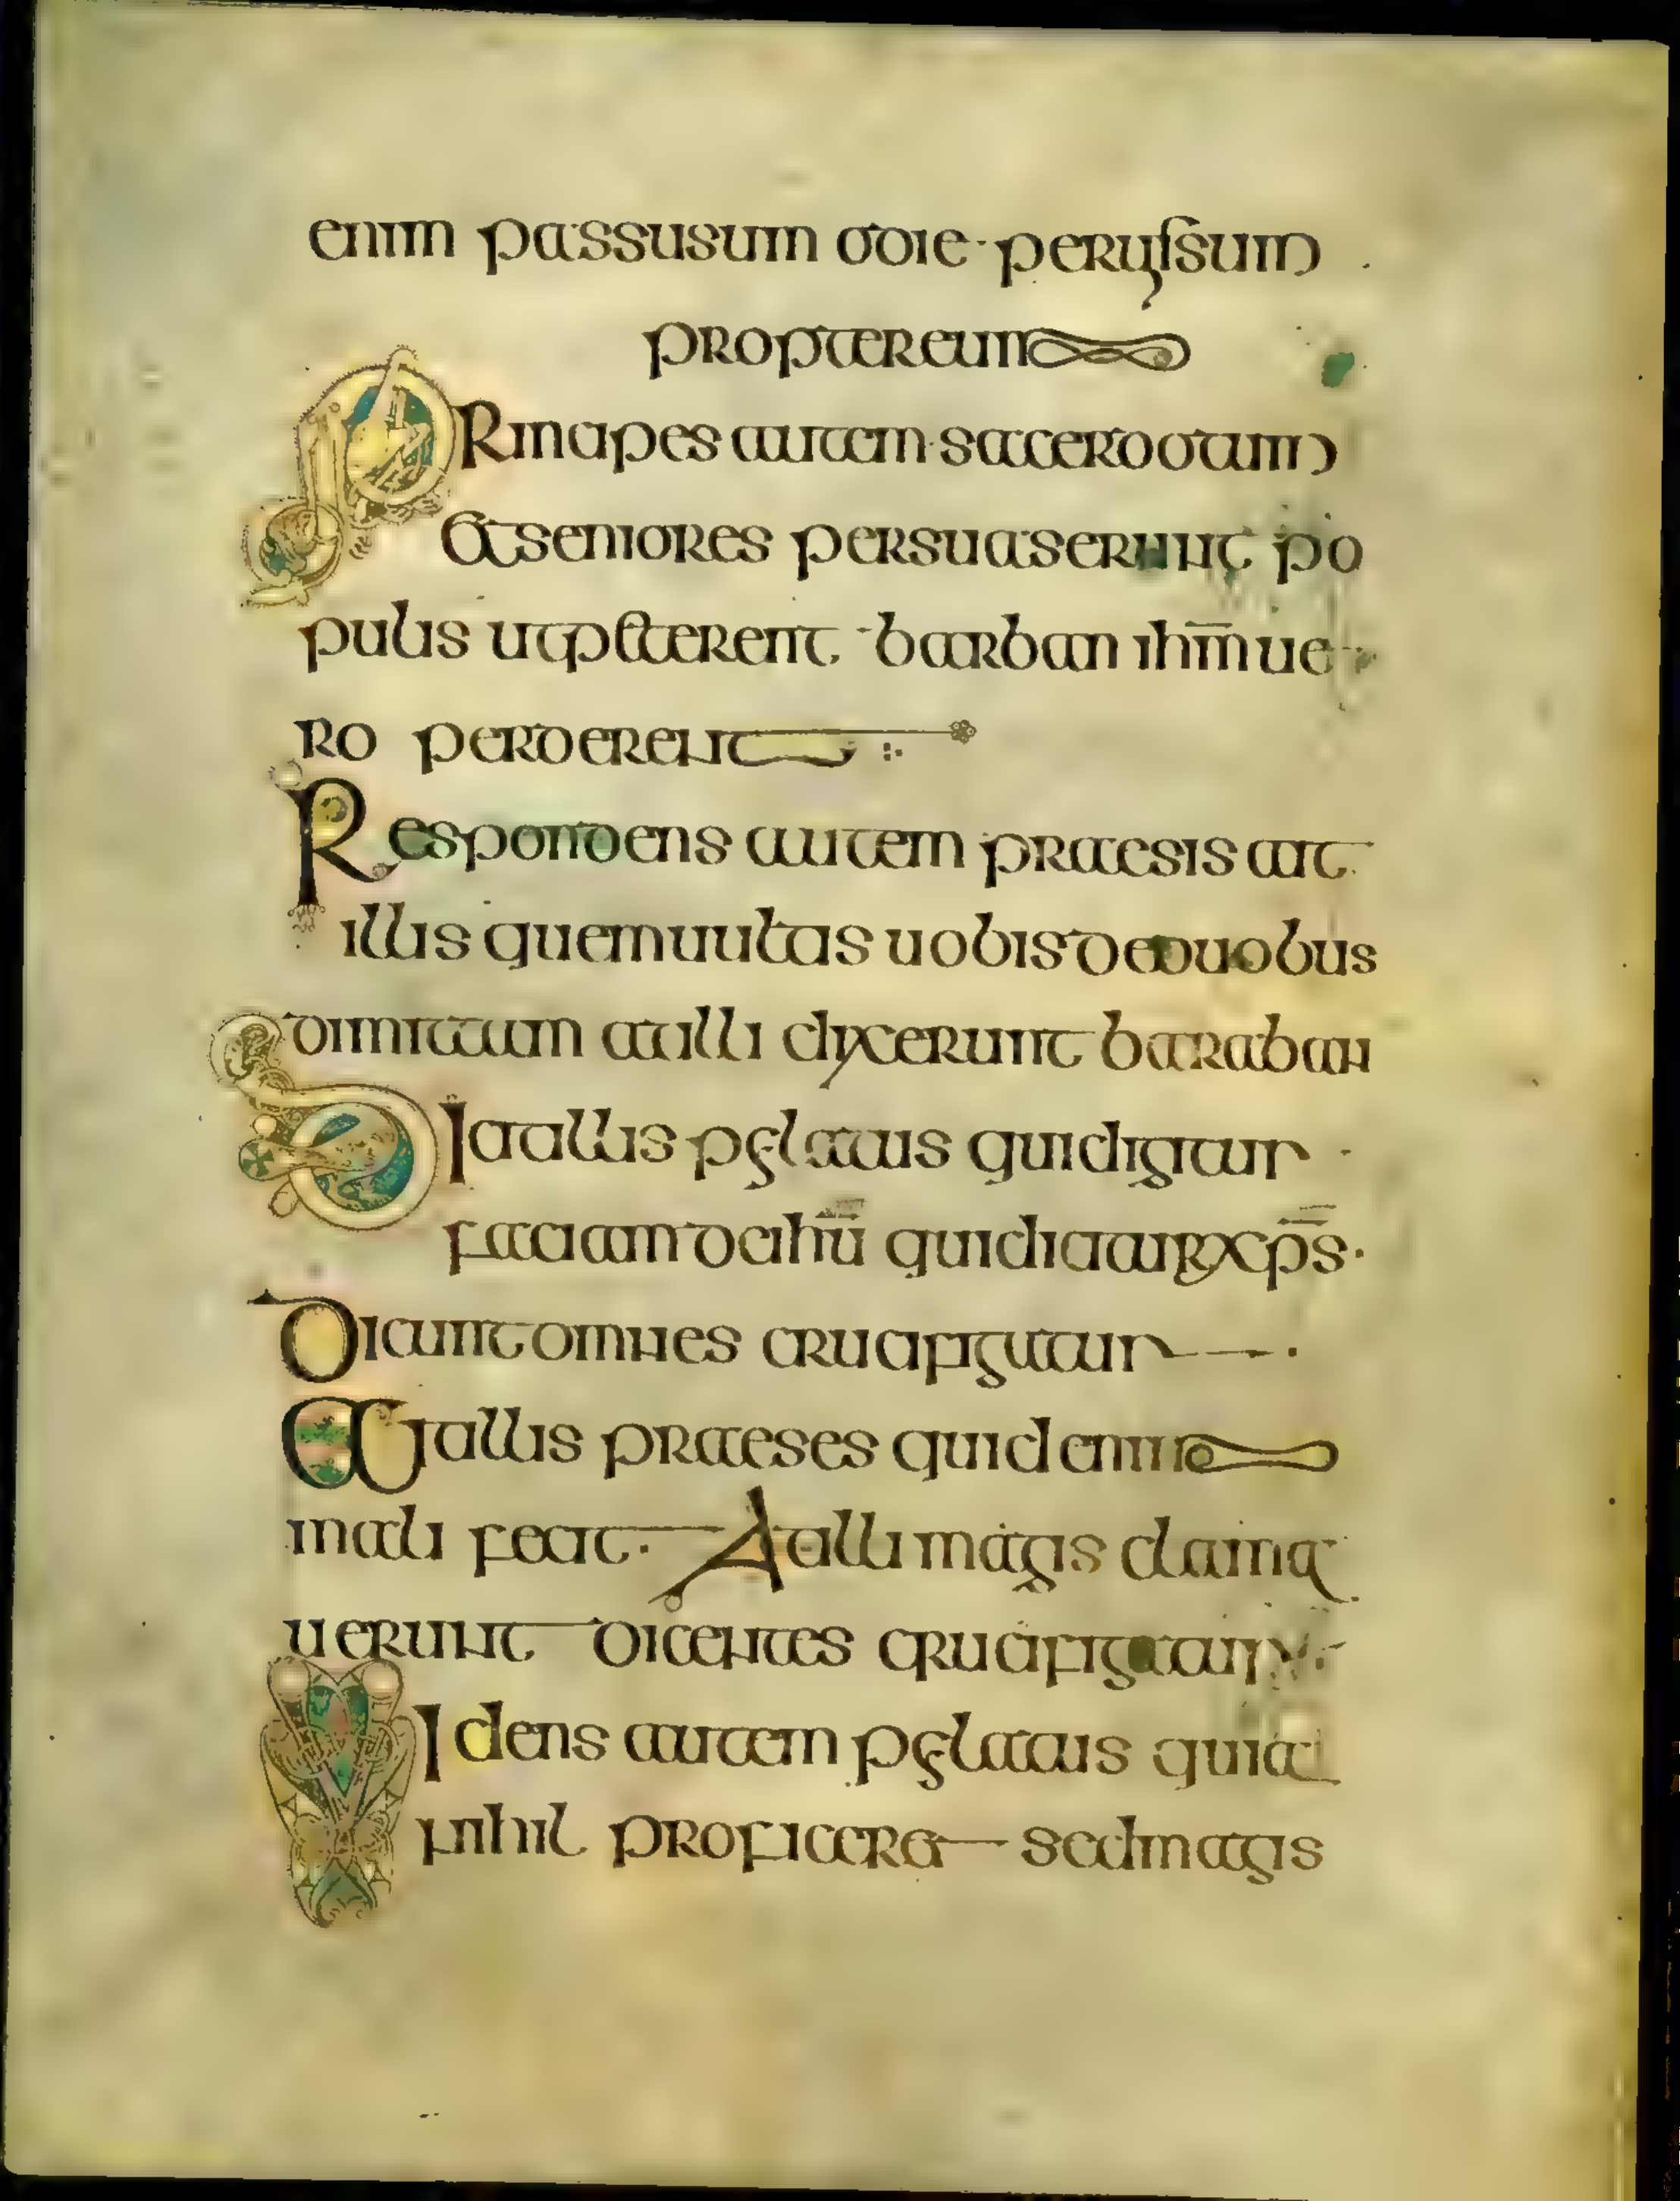 enim passusum odie · peruissum
proptereum
Principes autem · sacerdotum
et seniores persuaserunt po
pulis ut peterent · barban ihm̅ ue
ro perderent
Respondens autem praesis ait
illis quem uultis uobis de duobus
dimittam at illi dixerunt baraban
Dicit illis pylatus quid igitur
faciam de ihu̅ qui dicitur xp̅s ·
Dicunt omnes crucifigatur ·
Ait illis praeses quid enim
mali fecit · At illi magis clama
uerunt dicentes crucifigatur
Uidens autem pylatus quia
nihil proficeret sed magis